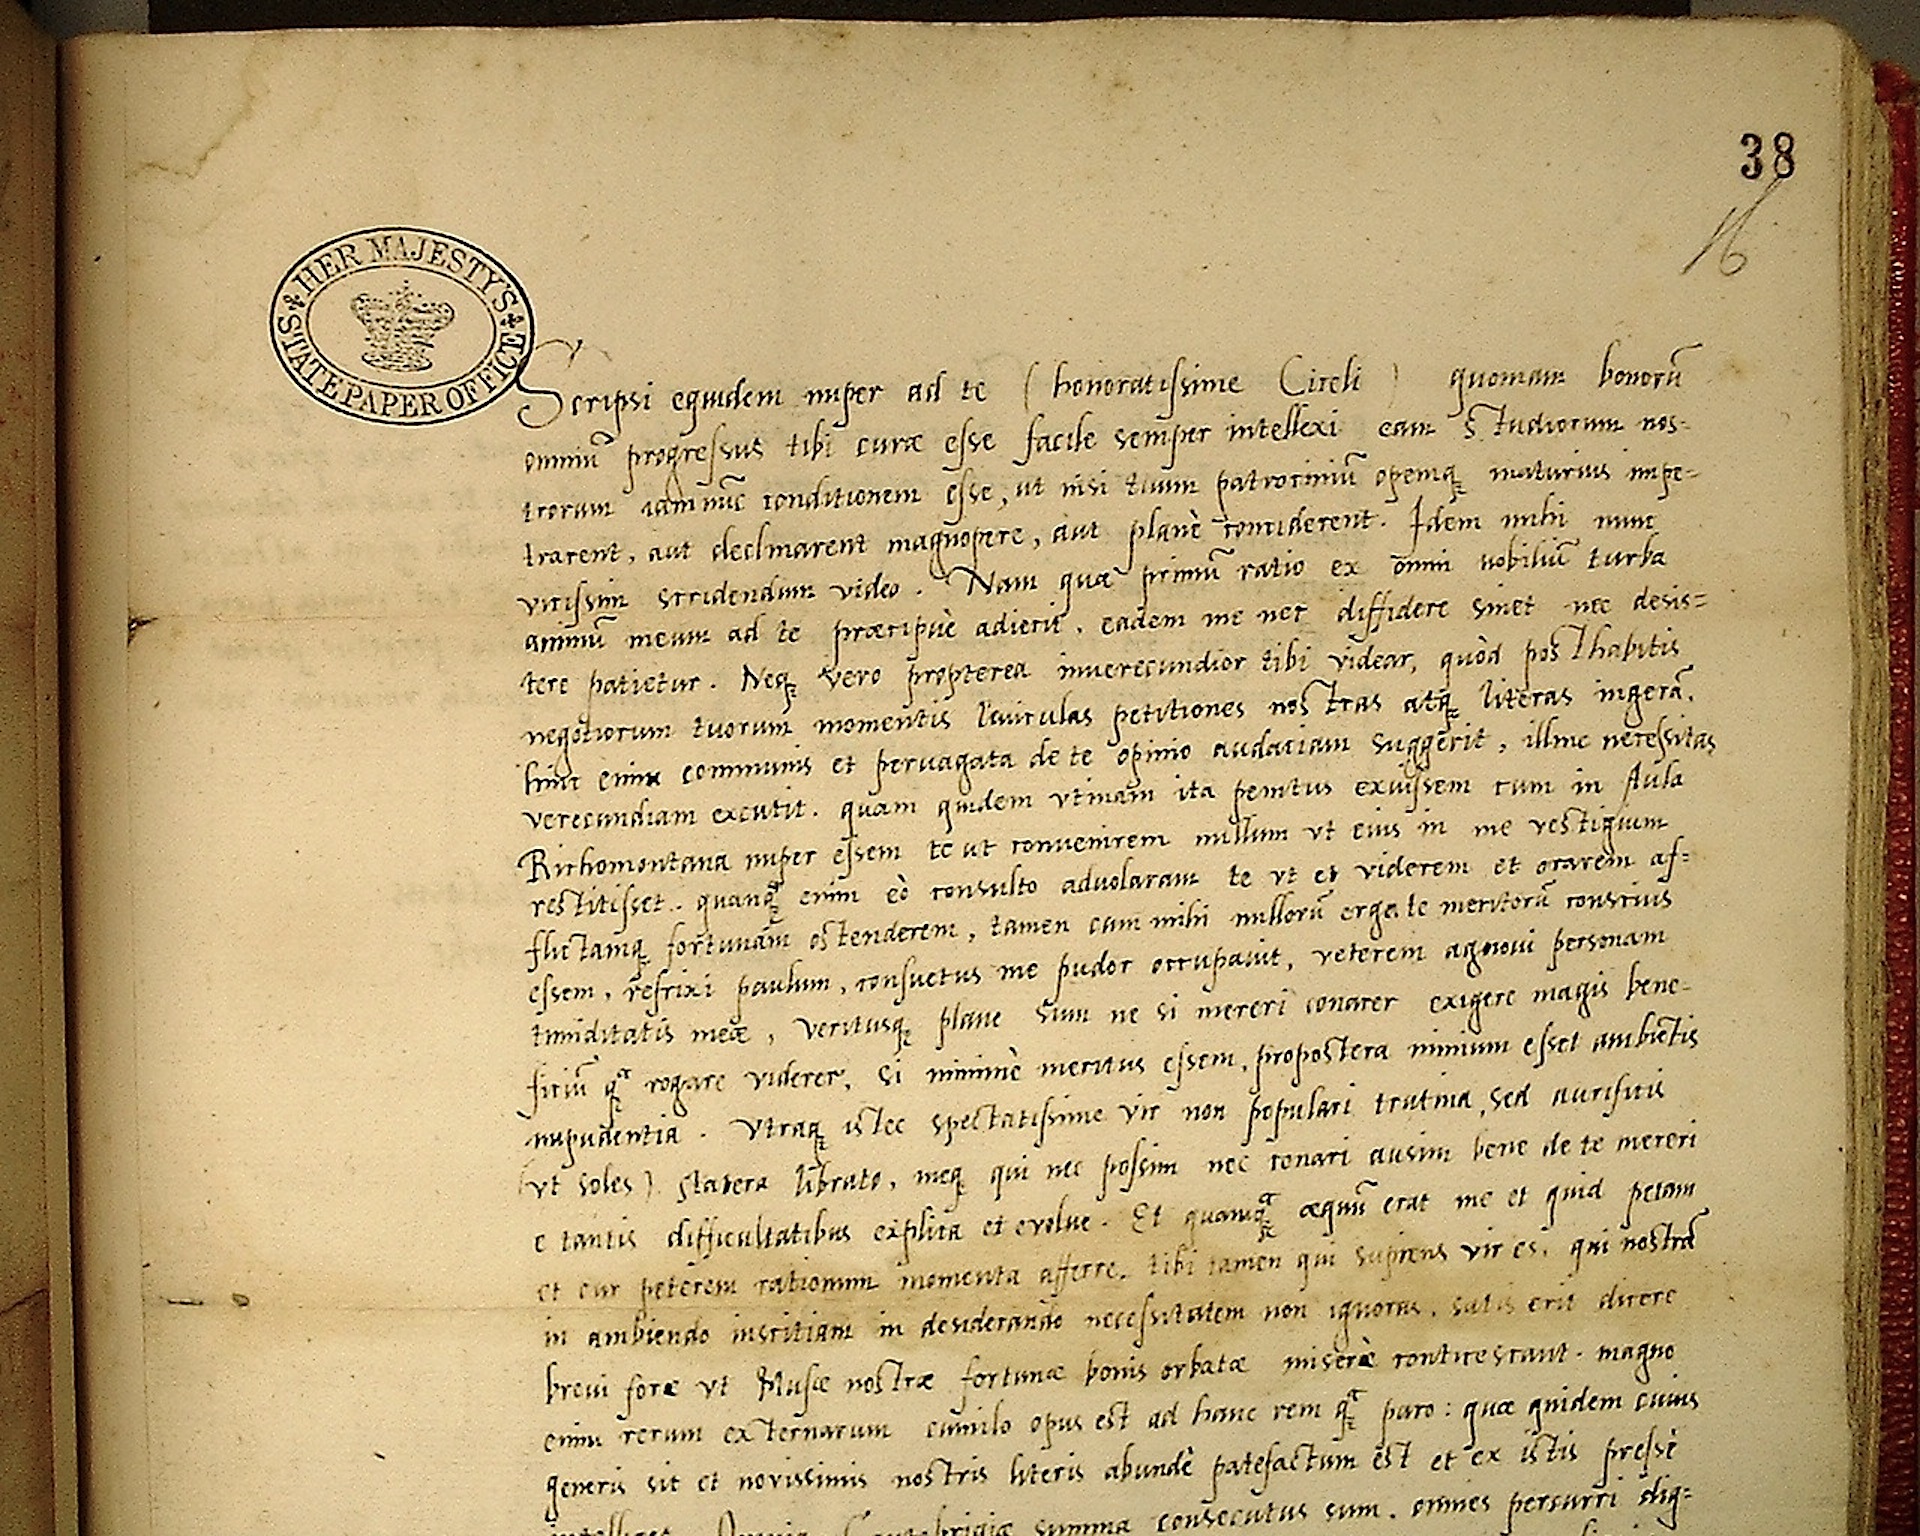 38
16
HER MAJESTY'S STATE PAPER OFFICE
Scripsi equidem nuper ad te (honoratissime Ciceli) quoniam bonorū
omniū progressus tibi curæ esse facile semper intellexi eam studiorum nos-
trorum iam nūc conditionem esse, ut nisi tuum patrociniū opemq̨ maturius impe-
trarent, aut declinarent magnopere, aut planè conciderent. Idem mihi nunc
vicissim stridendum video. Nam quæ primū ratio ex omni nobiliū turba
animū meum ad te præcipuè adiecit, eadem me nec diffidere sinet nec desis=
tere patietur. Neq̨ vero propterea inuerecundior tibi videar, quòd posthabitis
negotiorum tuorum momentis leuiculas petitiones nostras atq̨ literas ingerā.
hinc enim communis et peruagata de te opinio audaciam suggerit, illinc necessitas
verecundiam excutit. quam quidem vtinam ita penitus exuissem cum in Aula
Richomontana nuper essem te ut conuenirem nullum vt eius in me vestigium
restitisset. quanq̨ enim eò consulto aduolaram te vt et viderem et orarem af=
flictamq̨ fortunam ostenderem, tamen cum mihi nullorū erga te meritorū conscius
essem, refrixi paulum, consuetus me pudor occupauit, veterem agnoui personam
timiditatis meæ, veritusq̨ plane sum ne si mereri conarer exigere magis bene-
ficiū q̨ rogare viderer, si minimè meritus essem, propostera nimium esset ambientis
impudentia. Vtraq̨ istec spectatissime vir non populari trutina, sed aurificis
(vt soles) statera librato, meq̨ qui nec possim nec conari ausim bene de te mereri
e tantis difficultatibus explica et evolue. Et quamq̨ æquū erat me et quid petam
et cur peterem rationum momenta afferre. tibi tamen qui sapiens vir es, qui nostrā
in ambiendo inscitiam in desiderando necessitatem non ignoras, satis erit dicere
breui fore vt Musæ nostræ fortunæ bonis orbatæ miserè conticescant. magno
enim rerum externarum cumulo opus est ad hanc rem q̨ paro: quæ quidem cuius
generis sit et novissimis nostris literis abundè patefactum est et ex istis pressè
Cantebrigiæ summa consecutus sum. omnes percurri dig=